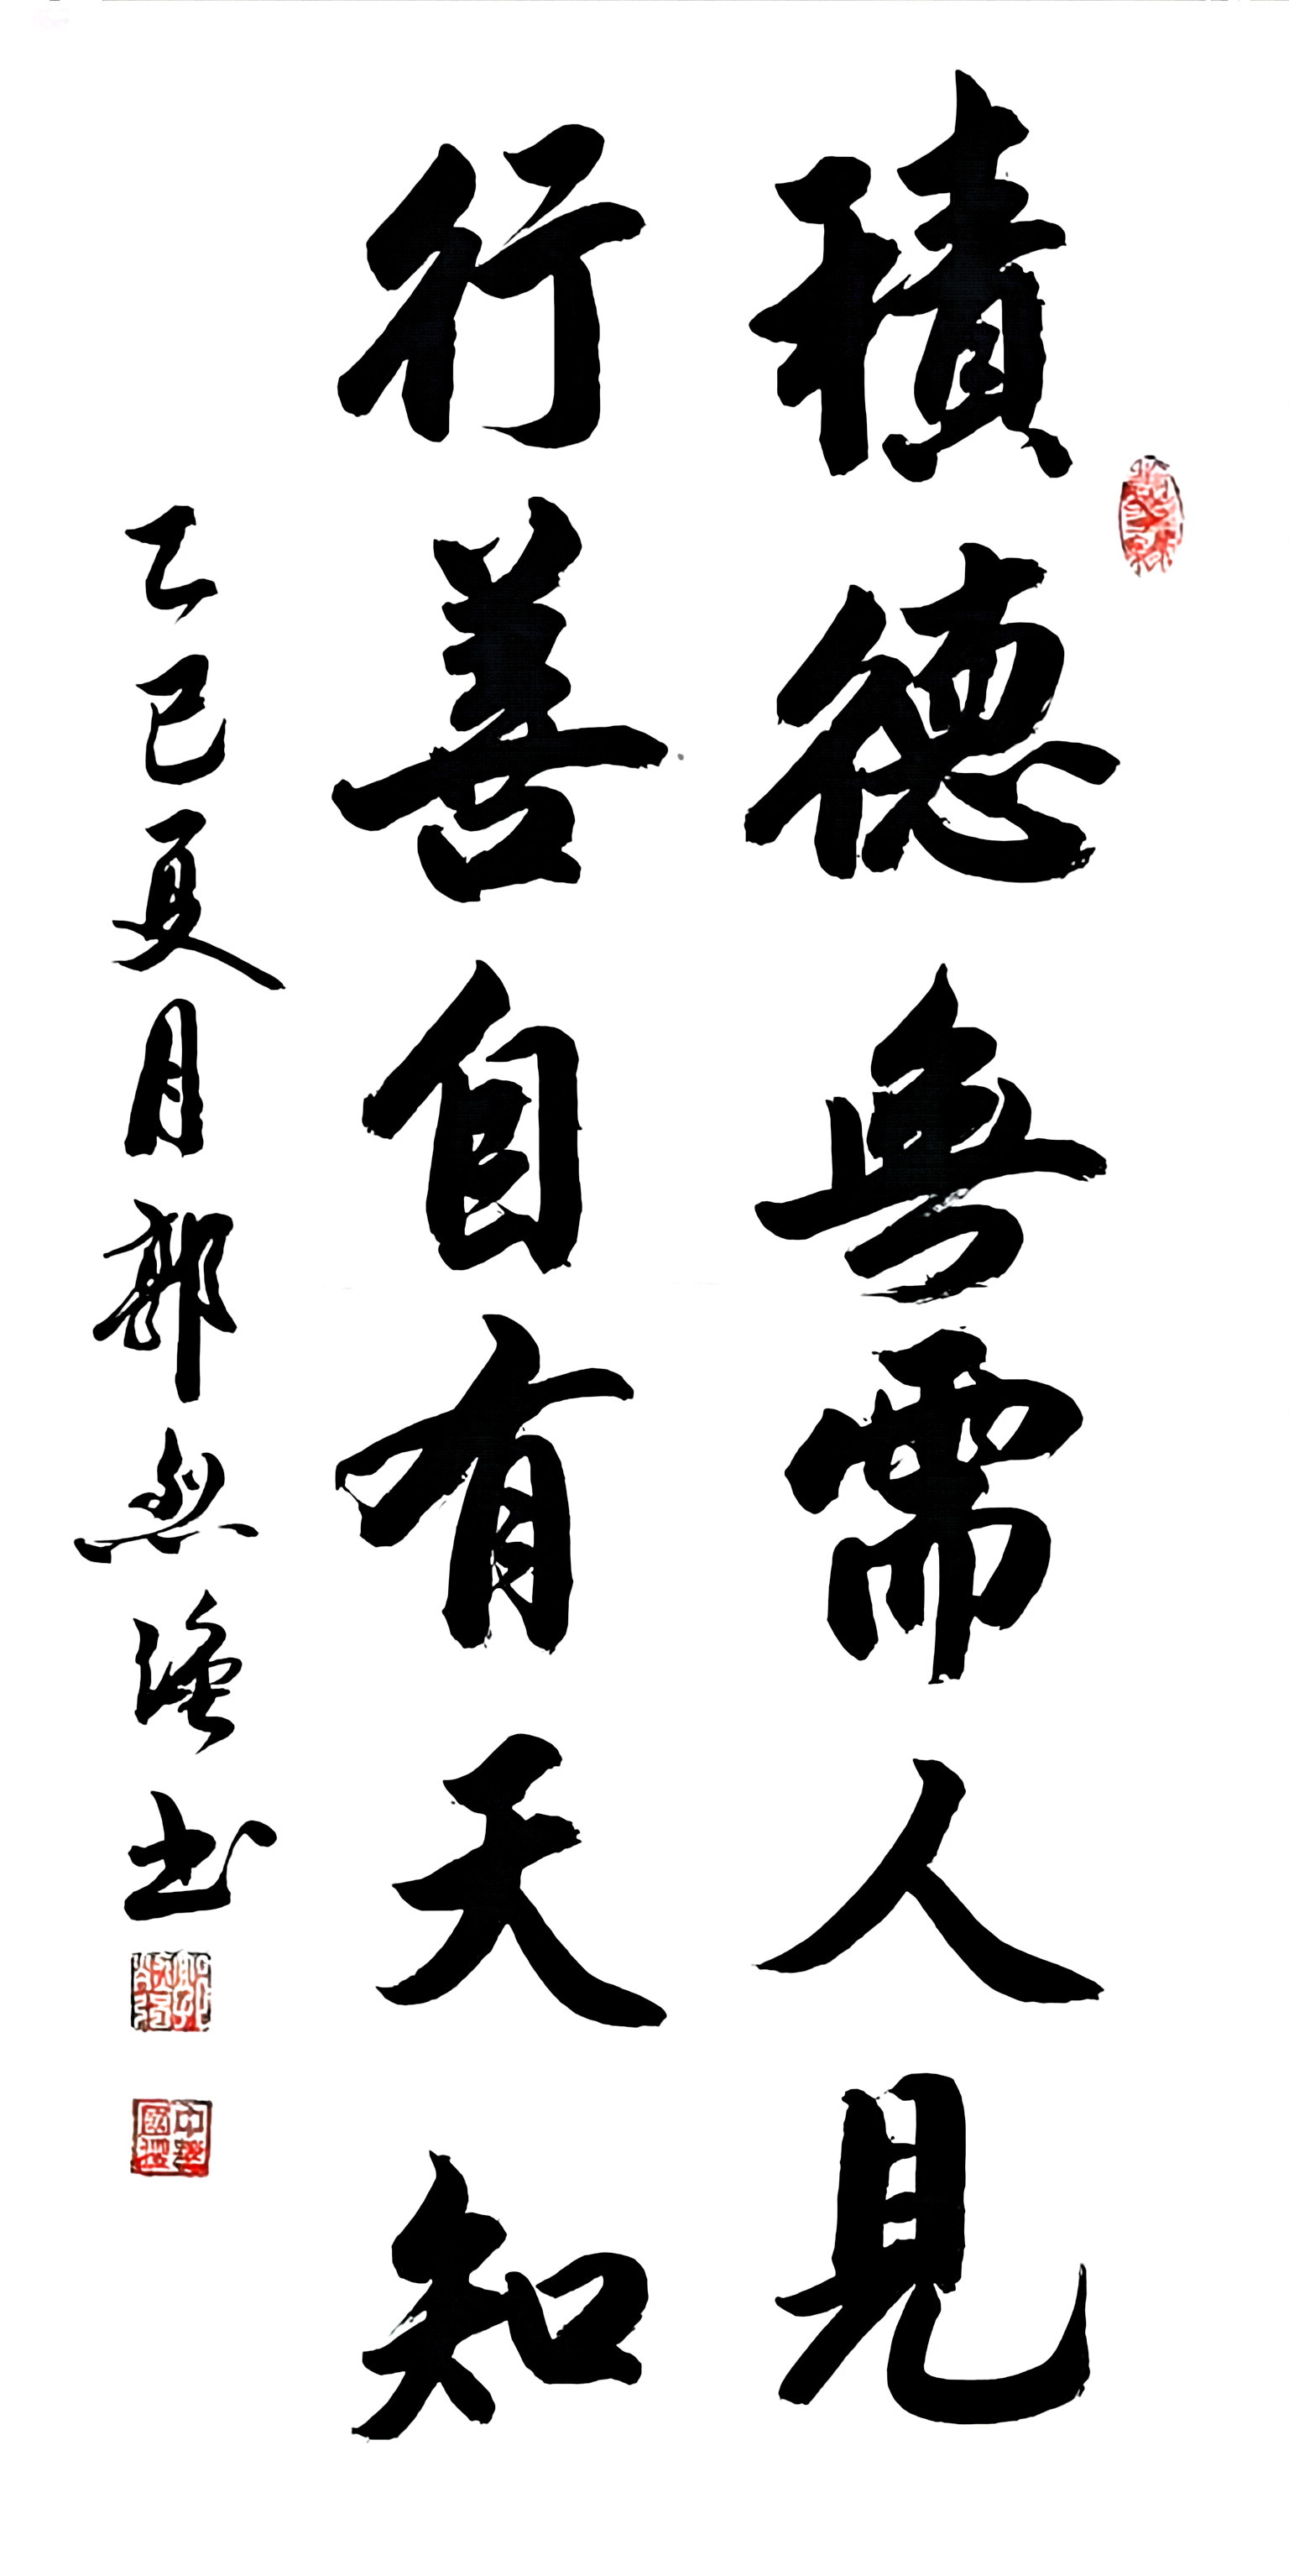 積德無需人見
行善自有天知
乙巳夏月郭 書